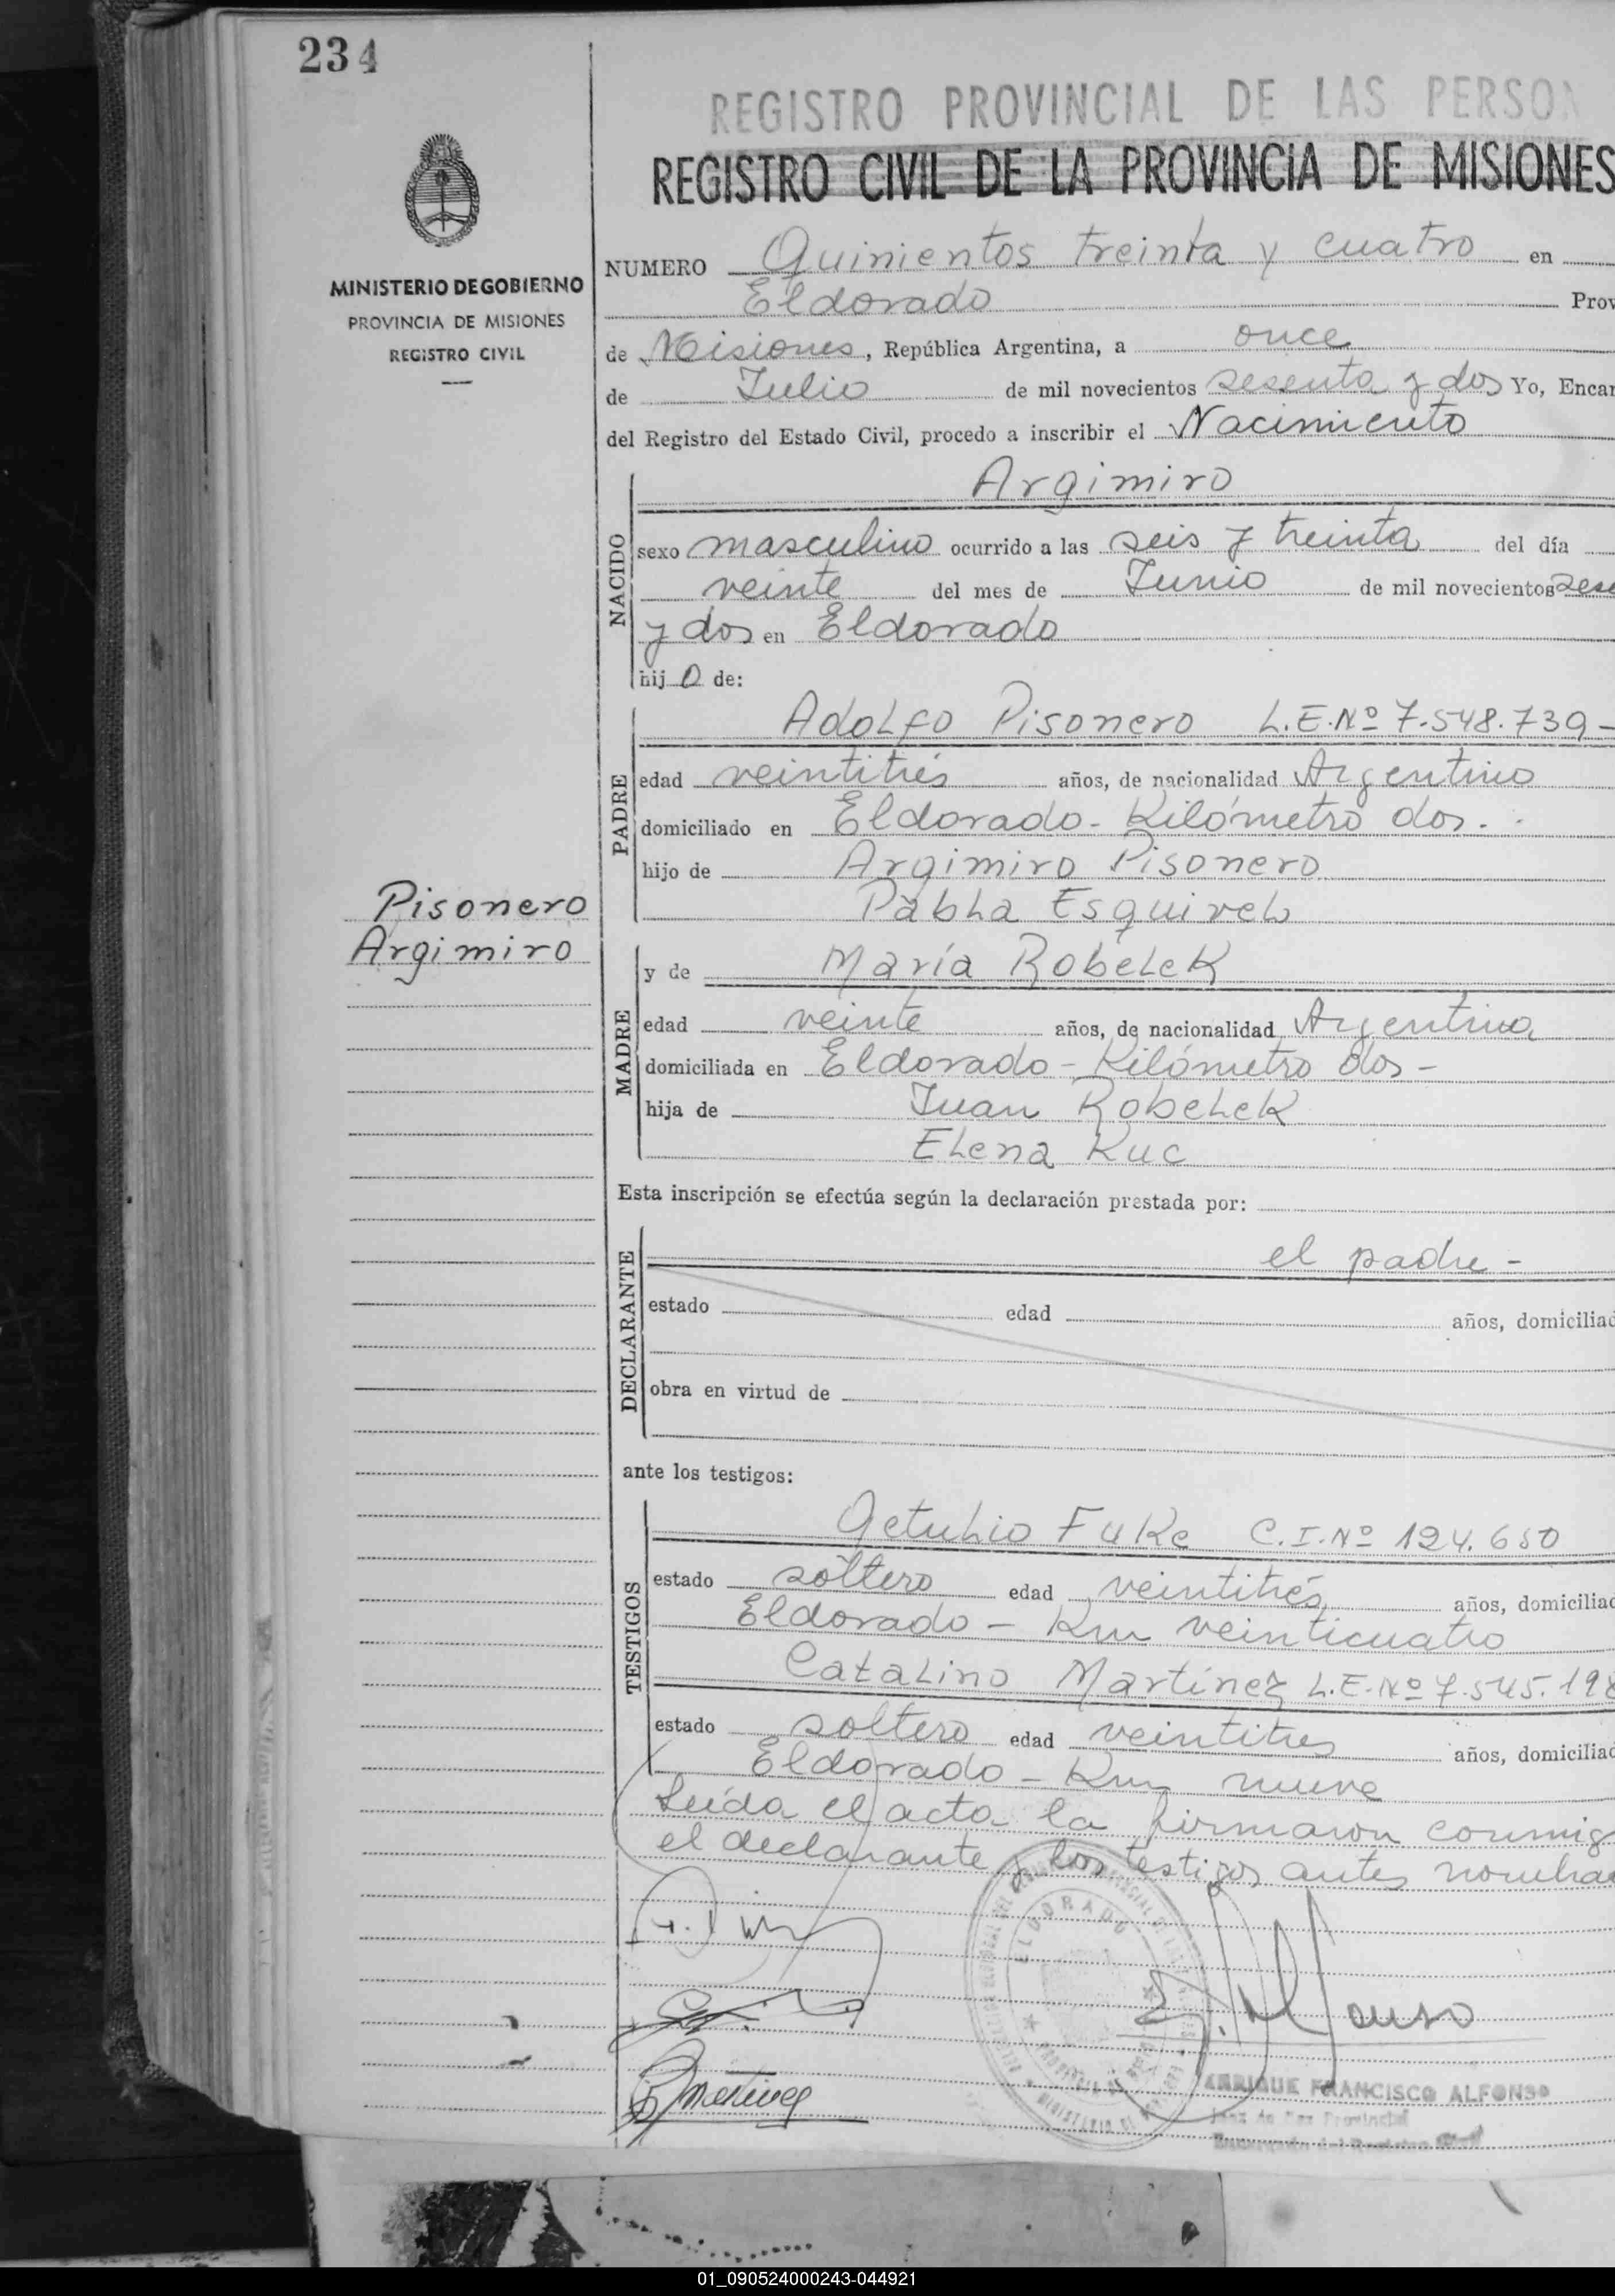 234
REGISTRO PROVINCIAL DE LAS PERSON
REGISTRO CIVIL DE LA PROVINCIA DE MISIONES
MINISTERIO DE GOBIERNO
PROVINCIA DE MISIONES
REGISTRO CIVIL
NUMERO Quinientos treinta y cuatro en
Eldorado Prov
de Misiones, República Argentina, a once
de Julio de mil novecientos sesenta y dos Yo, Encar
del Registro del Estado Civil, procedo a inscribir el Nacimiento
NACIDO
Argimiro
sexo masculino ocurrido a las seis y treinta del día
veinte del mes de Junio de mil novecientos sese
y dos en Eldorado
hijo de:
PADRE
Adolfo Pisonero L.E.Nº 7.548.739-
edad veintitrés años, de nacionalidad Argentino
domiciliado en Eldorado - Kilómetro dos.
hijo de Argimiro Pisonero
Pabla Esquivel
Pisonero
Argimiro
MADRE
y de María Robelek
edad veinte años, de nacionalidad Argentina
domiciliada en Eldorado - Kilómetro dos -
hija de Juan Robelek
Elena Kuc
Esta inscripción se efectúa según la declaración prestada por:
DECLARANTE
el padre -
estado edad años, domiciliad
obra en virtud de
ante los testigos:
TESTIGOS
Getulio Fuke C.I.Nº 124.650
estado soltero edad veintitrés años, domiciliad
Eldorado - Km veinticuatro
Catalino Martínez L.E.Nº 7.545.198
estado soltero edad veintitres años, domiciliad
Eldorado - Km nueve
Leída el acta la firmaron conmig
el declarante y los testigos antes nombra
ELDORADO
ENRIQUE FRANCISCO ALFONSO
Juez de Paz Provincial
Encargado del Registro Civil
01_090524000243-044921